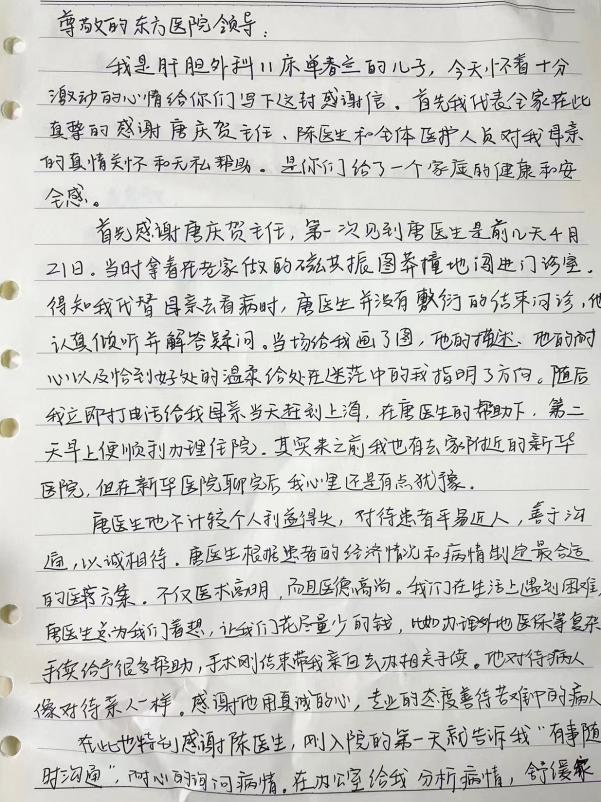 尊敬的东方医院领导：
我是肝胆外科11床单春兰的儿子，今天怀着十分
激动的心情给你们写下这封感谢信。首先我代表全家在此
真挚的感谢唐庆贺主任、陈医生和全体医护人员对我母亲
的真情关怀和无私帮助。是你们给了一个家庭的健康和安
全感。
首先感谢唐庆贺主任，第一次见到唐医生是前几天4月
21日。当时拿着在老家做的磁共振图莽撞地闯进门诊室。
得知我代替母亲去看病时，唐医生并没有敷衍的结束问诊，他
认真倾听并解答疑问。当场给我画了图，他的描述、他的耐
心以及恰到好处的温柔给处在迷茫中的我指明了方向。随后
我立即打电话给我母亲当天赶到上海，在唐医生的帮助下，第二
天早上便顺利办理住院。其实来之前我也有去家附近的新华
医院，但在新华医院聊完后我心里还是有点犹豫。
唐医生他不计较个人利益得失，对待患者平易近人，善于沟
通，以诚相待。唐医生根据患者的经济情况和病情制定最合适
的医疗方案。不仅医术高明，而且医德高尚。我们在生活上遇到困难，
唐医生总为我们着想，让我们花尽量少的钱，比如办理外地医保等复杂
手续给予很多帮助，手术刚结束带我亲自去办相关手续。他对待病人
像对待亲人一样。感谢他用真诚的心，专业的态度善待苦难中的病人
在此也特别感谢陈医生，刚入院的第一天就告诉我“有事随
时沟通”，耐心的询问病情。在办公室给我分析病情，舒缓家